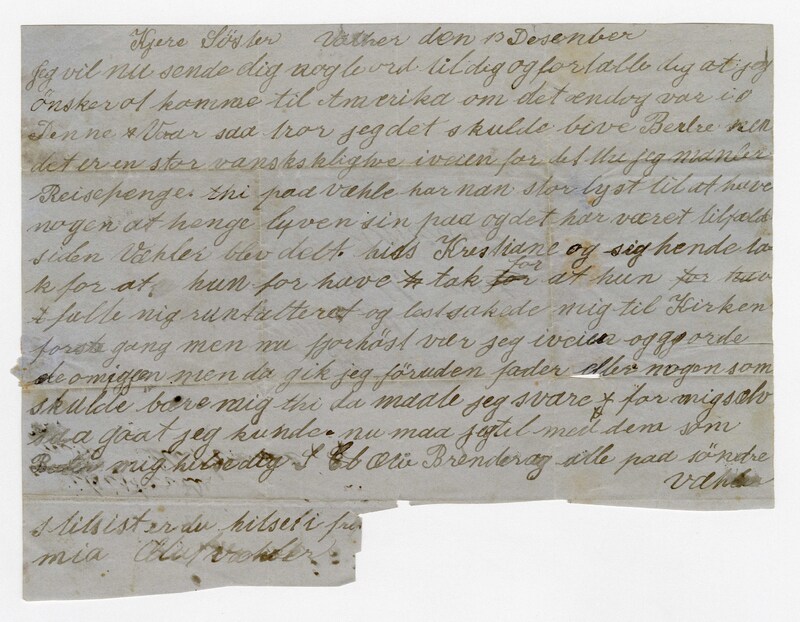 Kjere Söster Væhler den 13 Desember
jeg vil nu sende dig nogle ord til dig og fortælle dig at jeg
önsker at komme til Amerika om det ændog var i
Denne Vaar saa tror jeg det skulde bive Bedre men
det er en stor vanskskligwe iveien for det thi jeg mangler
Reisepenge. thi paa væhle har nan stor lyst til at have
nogen at henge lyven sin paa og det har været tilfæld
siden Væhler blev delt. hils Kristiane og sig hende ta
k for at hun for have tak for at hun for hav
t fælle mig runt alteret og lostsakede mig til Kirken
förste gang men nu forhöst vær jeg iveien og gjorde
de omigjen men da gik jeg föruden fader eller nogen som
skulde bære mig thi da maate jeg svare for mig sælv
saa gaat jeg kunde. nu maa jeg til med dem som
Beder mig hilse dig Olw Brenderag alle paa söndre
Væhler
s tilsist er du hilset i fra
mia Oluf Væhler